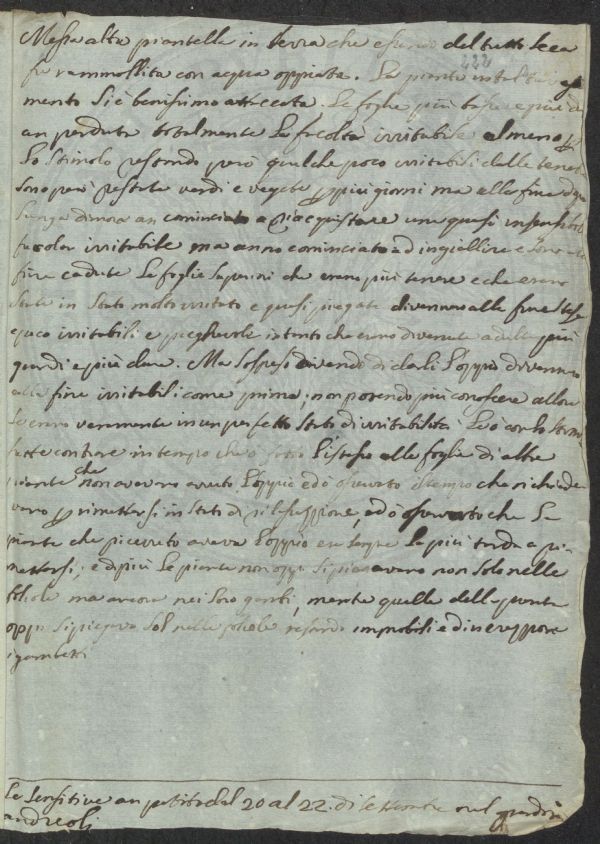 Messa altra piantella in terra che essendo del tutto secca
fu rammollita con acqua oppiata. La pianta in tal
222
mento si è benissimo attaccata. Le foglie più basse e più
an perduta totalmente la facoltà irritabile almeno p
lo stimolo restando però qualche poco irritabili dalle
sono però restate verdi e vegete p più giorni ma alla fine di
lunga dimora an cominciato a riacquistare una quasi insensibile
facoltà irritabile ma anno cominciato ad ingiallire e sono
fine cadute. Le foglie superiori che erano più tenere e che erano
state in stato molto irritato e quasi piegate divennero alla fine stese
e poco irritabili e pieghevoli intanto che erano divenute adulte più
grandi e più dure. Ma sospeso avendo di darli l'oppio divennero
alla fine irritabili come prima; non potendo più conoscere allora
se erano veramente in un perfetto stato di irritabilità. Le ò con lo stimolo
fatte contrarre in tempo che ò fatto l'istesso alle foglie di altre
piante che non avevano avuto l'oppio ed ò osservato il tempo che richiede
vano p rimettersi in stato di rilassazione, ed ò osservato che la
pianta che ricevuto aveva l'oppio era sempre la più tarda a ri-
mettersi; e di più le piante non opp. si piegavano non solo nelle
foliole ma ancora nei loro gambi, mentre quelle della pianta
opp. si piegava sol nelle foliole restando immobili e di
i gambetti
Le sensitive an patito dal 20 al 22 di settembre nel
andreoli